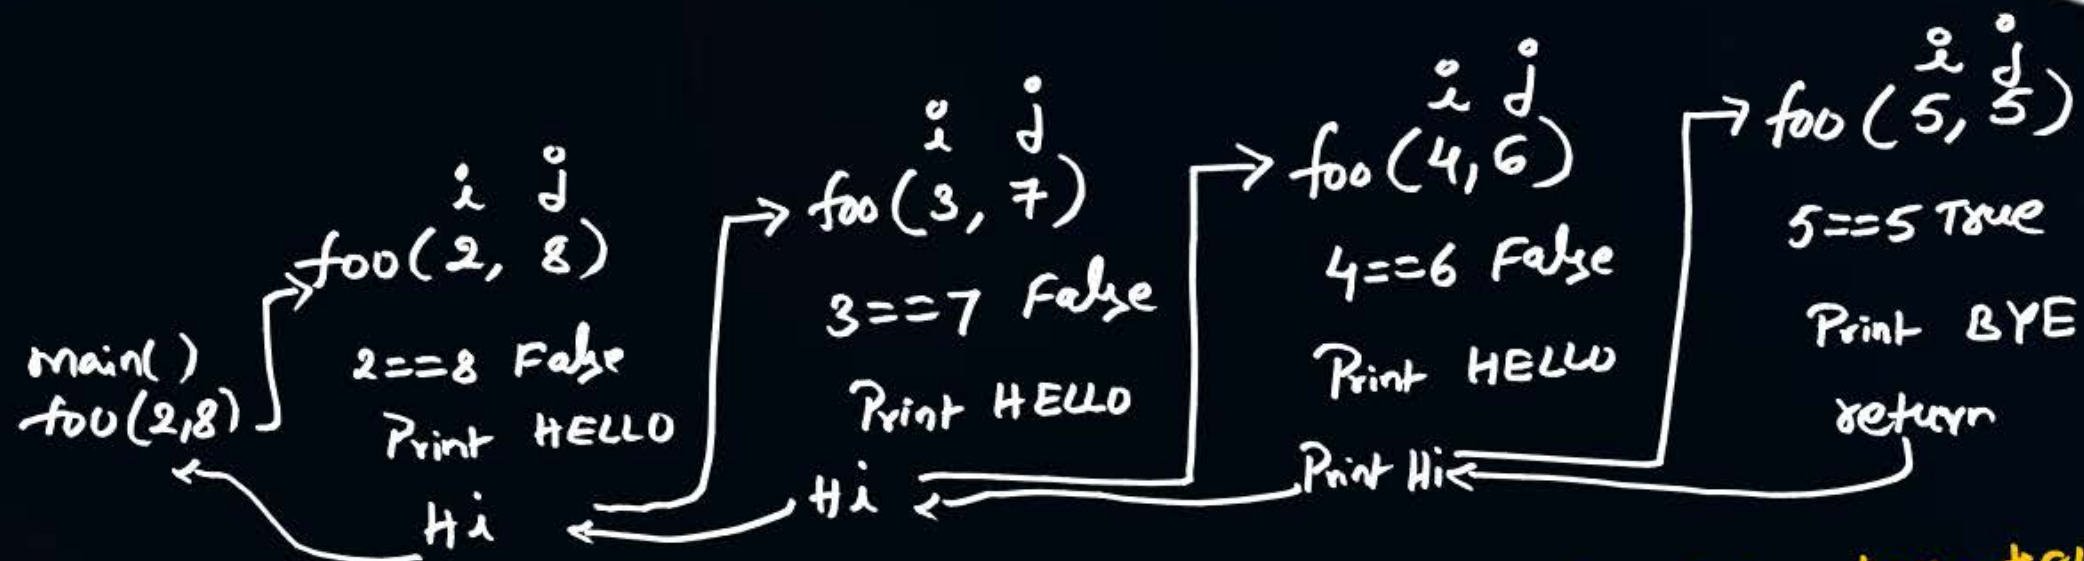 main()
foo(2,8)
i j
foo(2, 8)
2==8 False
Print HELLO
Hi
i j
foo(3, 7)
3==7 False
Print HELLO
Hi
i j
foo(4,6)
4==6 False
Print HELLO
Print Hi
i j
foo(5, 5)
5==5 True
Print BYE
return